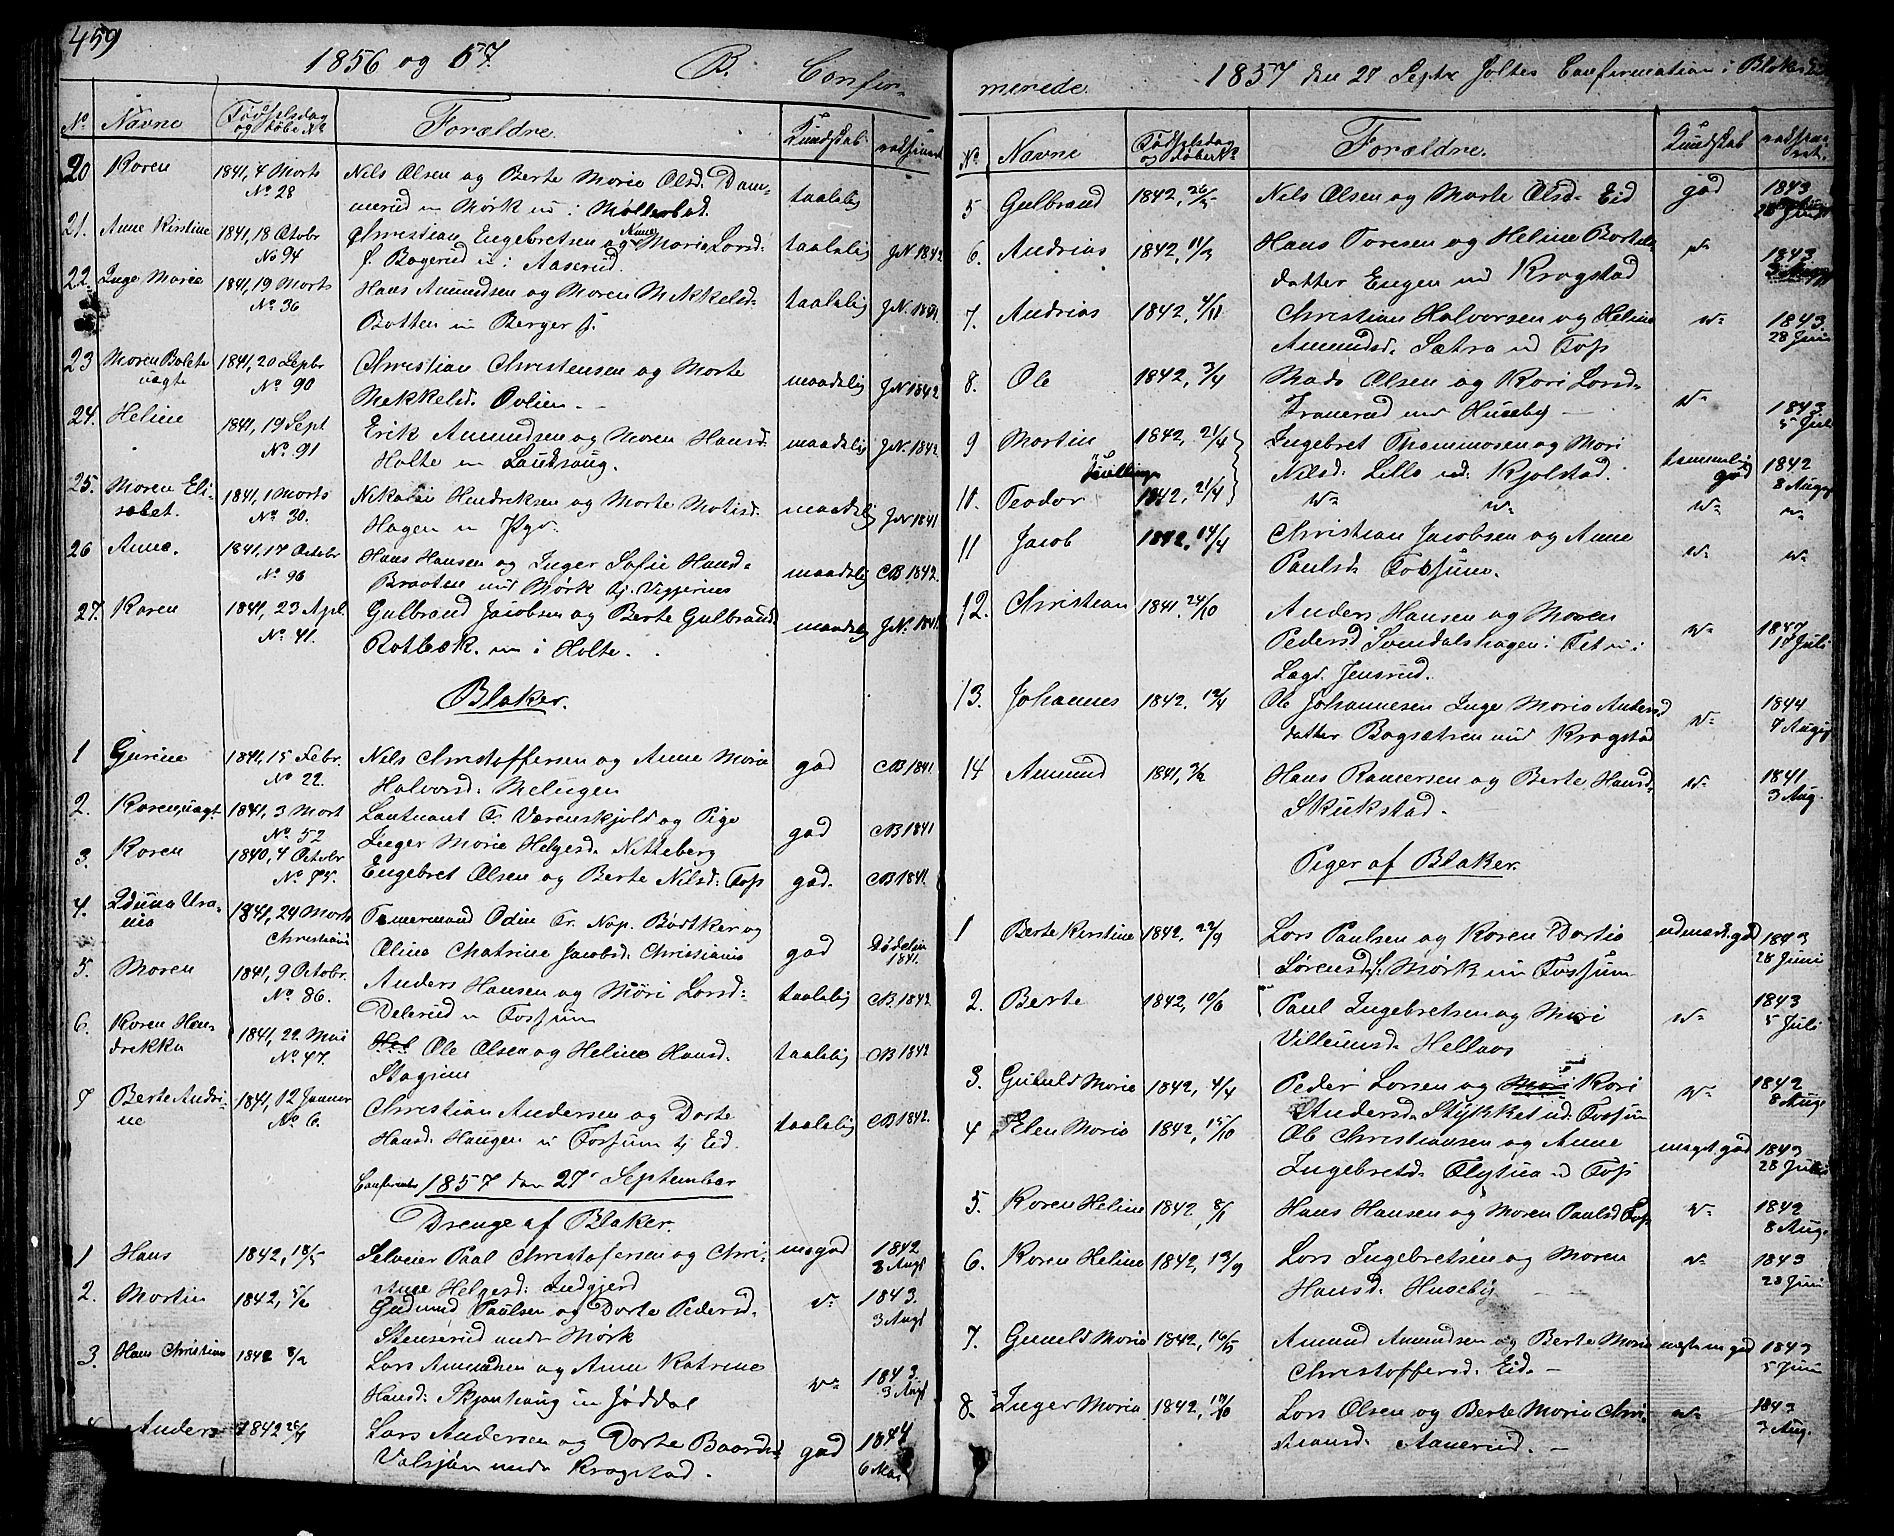 459
1856 og 57.
B.
Confir-
No Navne Fødselsdag og Døbe No Forældre Kundskab vaksineret
20 Karen 1841, 4 Marts No 28 Nils Olsen og Berte Marie Olsd: Dam-
merud u Mørk u i Møllerstad. taalelig
21. Anne Kirstine 1841, 18 Octobr No 94 Christian Engebretsen og Anne Marie Larsd:
f. Bagerud u i Aaserud. taalelig J.N. 1842
22. Inge Marie 1841, 19 Marts No 36 Hans Amundsen og Maren Mekkelsd:
Botten u Berger f. taalelig J.N. 1841.
23 Maren Bolete uægte 1841, 20 Septbr No 90 Christian Christensen og Marte
Mekkelsd. Ovlien. maadelig J.N 1842
24. Heline 1841, 19 Sept No 91 Erik Amundsen og Maren Hansd:
Holte u Lautsaug. maadelig J.N. 1842
25. Maren Eli-
sabet. 1841, 1 Marts No 30. Nikolai Hendriksen og Marte Matisd:
Hagen u maadelig J.N 1841.
26 Anne. 1841, 17 Octobr No 96 Hans Hansen og Inger Sofie Hansd:
Braaten und Mørk tj. maadelig CB 1842.
27. Karen 1841, 23 Apl No 41. Gulbrand Jacobsen og Berte Gulbrandsd
Rotbæk. u i Holte. maadelig J.N. 1841.
Blaker.
1 Gurine 1841, 15 Febr. No 22. Nils Christoffersen og Anne Marie
Halvorsd: Melugen god CB 1841
2. Karen, uægt 1841, 3 Mart No 52 Lautnant Fr Værenskjold og Pige
Inger Marie Helgesd. Nitteberg god CB 1841
3. Karen 1840, 4 Octobr No 85. Engebret Olsen og Berte Nilsd: Fos god. CB 1841.
4. Ura-
nia 1841, 24 Marts Christiania Tømermand Odin Fr. Nap. Bødtker og
Oline Chatrine Jacobsd: Christiania god 1841.
5. Maren 1841, 9 Octobr. No 86. Anders Hansen og Mari Larsd:
Delerud u Fossum taalelig CB 1842
6. Karen Hen-
drekka 1841, 22 Mai No 47. Ole Olsen og Heline Hansd:
Stagnine taalelig CB 1842
7 Berte Andri-
ne 1841, 12 Januar No 6. Christian Andersen og Dorte
Hansd: Haugen u Fossum tj Eid. taalelig CB 1842.
Confirmeret 1857 den 27 September
Drenge af Blaker.
1 Hans 1842, 18/5 Selveier Paal Christofersen og Chri-
stine Helgesd: Indgjerd m god 1842 3 Augt
2. Martin 1842, 5/6 Gudmund Paulsen og Dorte Pedersd.
Stenserud under Mørk do 1843. 3 Augt
3. Hans Christian 1842 Lars Amundsen og Anne Katrine
Hansd: Skjønhaug u Jøddal do 1843. 3 Augt
4 Anders 1842 Lars Andersen og Dorte Baardsd
Valsjøen under Kragstad. god 1844 6 Mai
merede
1857 den 27 Septr holtes Confirmation i Blaker
No Navne Fødselsdag og Døbe No Forældre Kundskab vaksineret.
5 Gulbrand 1842, 26/5 Nils Olsen og Marte Olsd: Eid god 1843
6. Andreas 1842, 11/3 Hans Toresen og Heline Bortels
datter Engen und Kragstad do 1843
7. Andreas 1842, 4/11 Christian Halvorsen og Heline
Amundsd. Sætra u Fos do 1843. 28 Juni
8. Ole 1842, 3/4 Mads Olsen og Kari Larsd.
Tranerud und Huseby do 1843. 5 Juli
9 Martin 1842, 21/4 Ingebret Thommasen og Mari
Nilsd: Lille u: Kjolstad. temmelig god 1842 8 Augt
Tvillinge
10. Teodor 1842, 21/4 do do do do
11 Jacob 1842, 14/4 Christian Jacobsen og Anne
Paulsd Fossum. do do
12. Christian 1841, 24/10 Anders Hansen og Maren
Pedersd Svendalshagen i Fet u i
Jensrud. do 1847 17 Juli
13. Johannes 1842. 12/4 Ole Johannesen Inge Marie Anders
datter Bagsætren und Kragstad do 1844 7 Augt
14 Amund 1841, Hans Ramersen og Berte Hansd.
Skukstad. do 1841 3 Aug.
Piger af Blaker.
1 Berte Kirstine 1842, 24/9 Lars Paulsen og Karen Dortea
Sørensd f. Mørk u Fossum udmærk. god 1843 28 Juni
2. Berte 1842, 10/6 Paul Ingebretsen og Mari
Villumsd. Hellaas do 1843 5 Juli
3. Gunild Marie 1842, 4/4 Peder Larsen og Kari
Andersd. Stykket u: Fossum do 1842 8 Augt
4 Elen Marie 1842, 15/10 Ole Christiansen og Anne
Ingebretsd. u Fos meget god 1843 28 Juli
5. Karen Heline 1842, 8/1 Hans Hansen og Maren Paulsd Fos do 1842 8 Aug.
6. Karen Heline 1842, 13/9 Lars Ingebretsen og Maren
Hansd: Huseby do 1843 28 Juni
7. Gunild Marie 1842, 16/5 Amund Amundsen og Berte Marie
Christoffersd: Eid. god 1843 5 Juni
8. Inger Marie 1842, 19/10 Lars Olsen og Berte Marie Chri-
stiansd: Aanerud. do 1843 3 Aug.